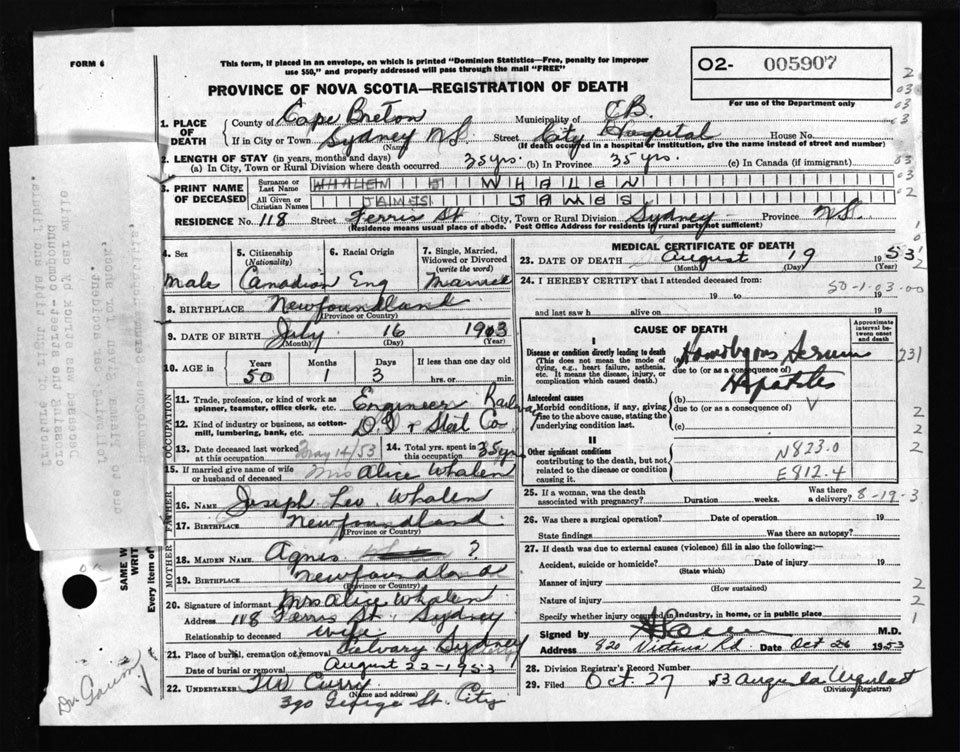 FORM 6
This form, if placed in an envelope, on which is printed "Dominion Statistics—Free, penalty for improper
use $50," and properly addressed will pass through the mail "FREE"
O2- 005907
For use of the Department only
PROVINCE OF NOVA SCOTIA—REGISTRATION OF DEATH
1. PLACE OF DEATH
County of Cape Breton Municipality of C.B.
If in City or Town Sydney N.S. Street City Hospital House No.
(Name) (If death occurred in a hospital or institution, give the name instead of street and number)
2. LENGTH OF STAY (in years, months and days)
(a) In City, Town or Rural Division where death occurred 35 yrs. (b) In Province 35 yrs. (c) In Canada (if immigrant)
3. PRINT NAME OF DECEASED
Surname or Last Name WHALEN
All Given or Christian Names JAMES JAMES
RESIDENCE No. 118 Street Ferris St. City, Town or Rural Division Sydney Province N.S.
(Residence means usual place of abode. Post Office Address for residents in rural parts not sufficient)
4. Sex 5. Citizenship (Nationality) 6. Racial Origin 7. Single, Married, Widowed or Divorced (write the word)
Male Canadian Eng Married
8. BIRTHPLACE Newfoundland
(Province or Country)
9. DATE OF BIRTH July 16 1903
(Month) (Day) (Year)
10. AGE in Years Months Days If less than one day old
50 1 3 hrs. or min.
OCCUPATION
11. Trade, profession, or kind of work as spinner, teamster, office clerk, etc. Engineer Railway
12. Kind of industry or business, as cotton-mill, lumbering, bank, etc. D.I & Steel Co.
13. Date deceased last worked at this occupation May 14/53 14. Total yrs. spent in this occupation 35 yrs
15. If married give name of wife or husband of deceased Mrs Alice Whalen
FATHER
16. NAME Joseph Leo Whalen
17. BIRTHPLACE Newfoundland
(Province or Country)
MOTHER
18. MAIDEN NAME Agnes ?
19. BIRTHPLACE Newfoundland
(Province or Country)
20. Signature of informant Mrs Alice Whalen
Address 118 Ferris St. Sydney
Relationship to deceased wife
21. Place of burial, cremation or removal Calvary Sydney
Date of burial or removal August 22-1953
22. UNDERTAKER Curry
(Name and address)
390 George St. City
MEDICAL CERTIFICATE OF DEATH
23. DATE OF DEATH August 19 1953
(Month) (Day) (Year)
24. I HEREBY CERTIFY that I attended deceased from:
19 to 19
50-1-03-00
and last saw h alive on 19
CAUSE OF DEATH
Approximate interval between onset and death
I
Disease or condition directly leading to death
(This does not mean the mode of dying, e.g., heart failure, asthenia, etc. It means the disease, injury, or complication which caused death.)
(a) Homologous Serum
due to (or as a consequence of) Hepatitis
Antecedent causes
Morbid conditions, if any, giving rise to the above cause, stating the underlying condition last.
(b)
due to (or as a consequence of)
(c)
II
Other significant conditions
contributing to the death, but not related to the disease or condition causing it.
N823.0
E812.4
25. If a woman, was the death associated with pregnancy? Duration weeks. Was there a delivery? 8-19-3
26. Was there a surgical operation? Date of operation 19
State findings Was there an autopsy?
27. If death was due to external causes (violence) fill in also the following:—
Accident, suicide or homicide? Date of injury 19
(State which)
Manner of injury
(How sustained)
Nature of injury
Specify whether injury occurred in industry, in home, or in public place
Signed by M.D.
Address 920 Victoria Rd Date Oct 26 1953
28. Division Registrar's Record Number
29. Filed Oct. 27 53
(Division Registrar)
231
SAME W
WRIT
Every item of